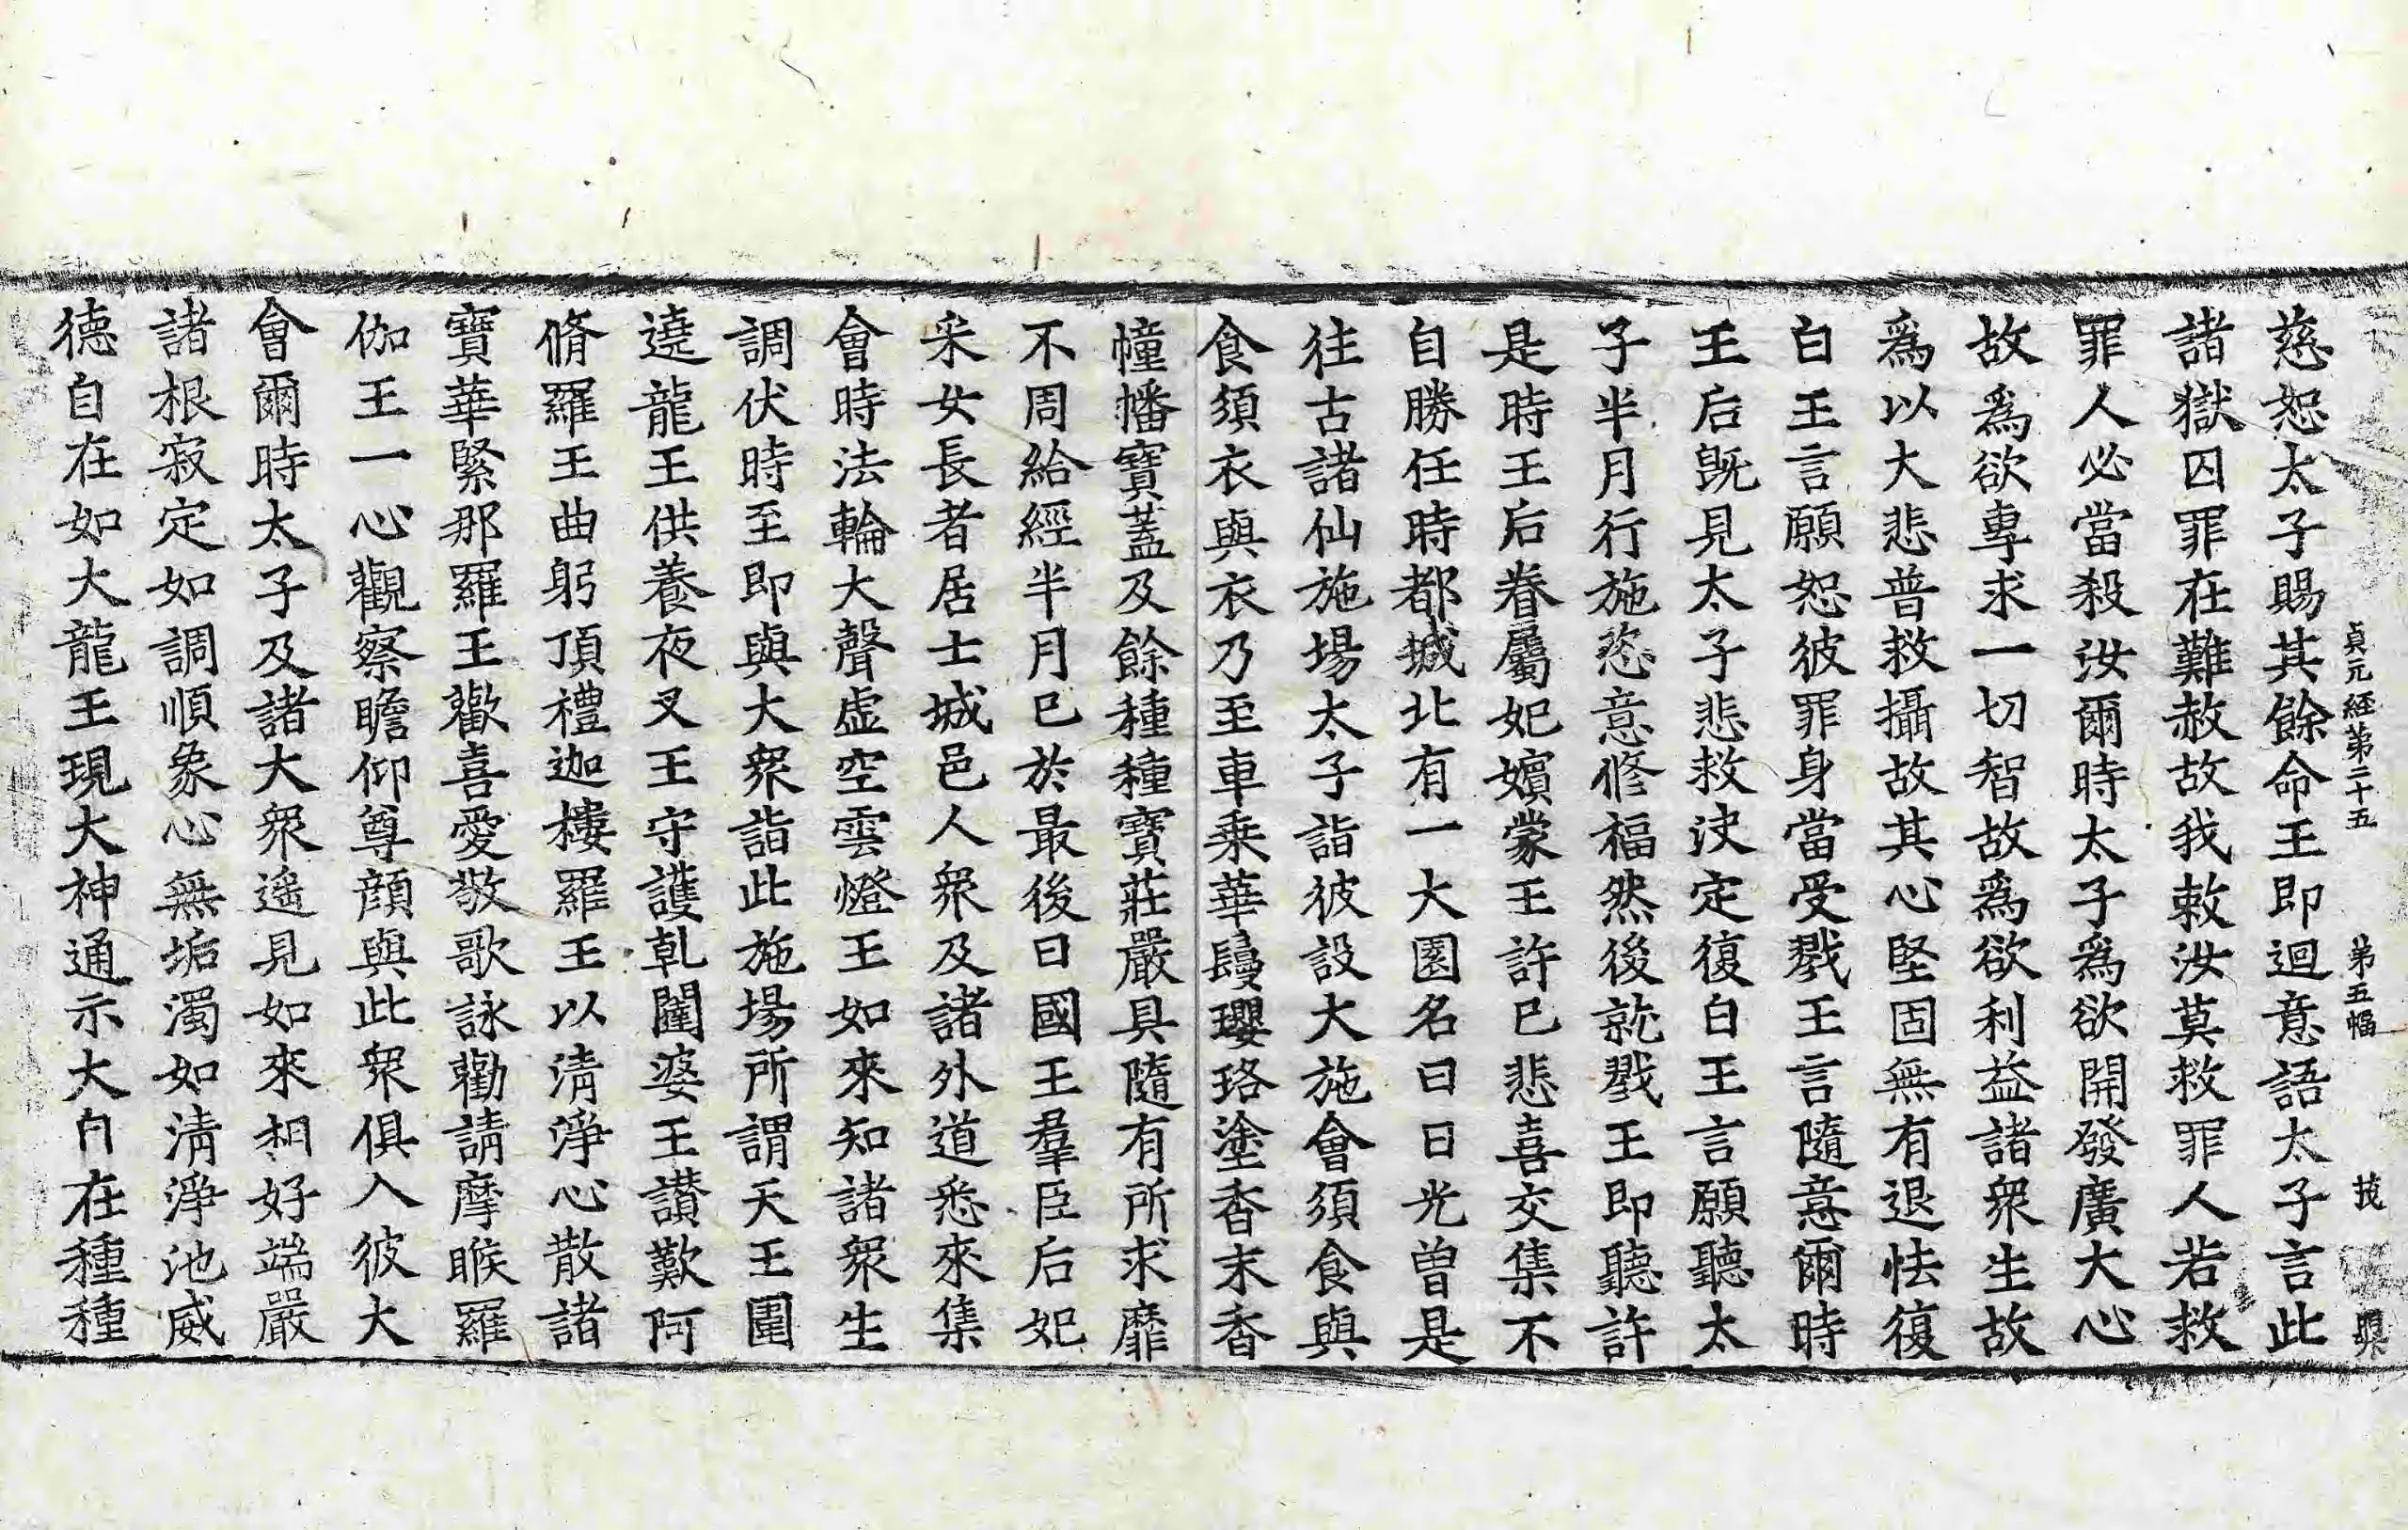 貞元經第二十五 第五幅
慈恕太子賜其餘命王即迴意語太子言此
諸獄囚罪在難赦故我敕汝莫救罪人若救
罪人必當殺汝爾時太子爲欲開發廣大心
故爲欲專求一切智故爲欲利益諸衆生故
爲以大悲普救攝故其心堅固無有退怯復
白王言願恕彼罪身當受戮王言隨意爾時
王后旣見太子悲救決定復白王言願聽太
子半月行施恣意修福然後就戮王即聽許
是時王后眷屬妃嬪蒙王許已悲喜交集不
自勝任時都城北有一大園名曰日光曾是
往古諸仙施場太子詣彼設大施會須食與
食須衣與衣乃至車乗華鬘瓔珞塗香末香
幢幡寶蓋及餘種種寶莊嚴具隨有所求靡
不周給經半月已於最後日國王羣臣后妃
采女長者居士城邑人衆及諸外道悉來集
會時法輪大聲虛空雲燈王如來知諸衆生
調伏時至即與大衆詣此施場所謂天王圍
遶龍王供養夜叉王守護乹闥婆王讃歎阿
脩羅王曲躬頂禮迦樓羅王以清淨心散諸
寶華緊那羅王歡喜愛敬歌詠勸請摩睺羅
伽王一心觀察瞻仰尊顔與此衆俱入彼大
會爾時太子及諸大衆遥見如來相好端嚴
諸根寂定如調順象心無垢濁如清淨池威
德自在如大龍王現大神通示大自在種種